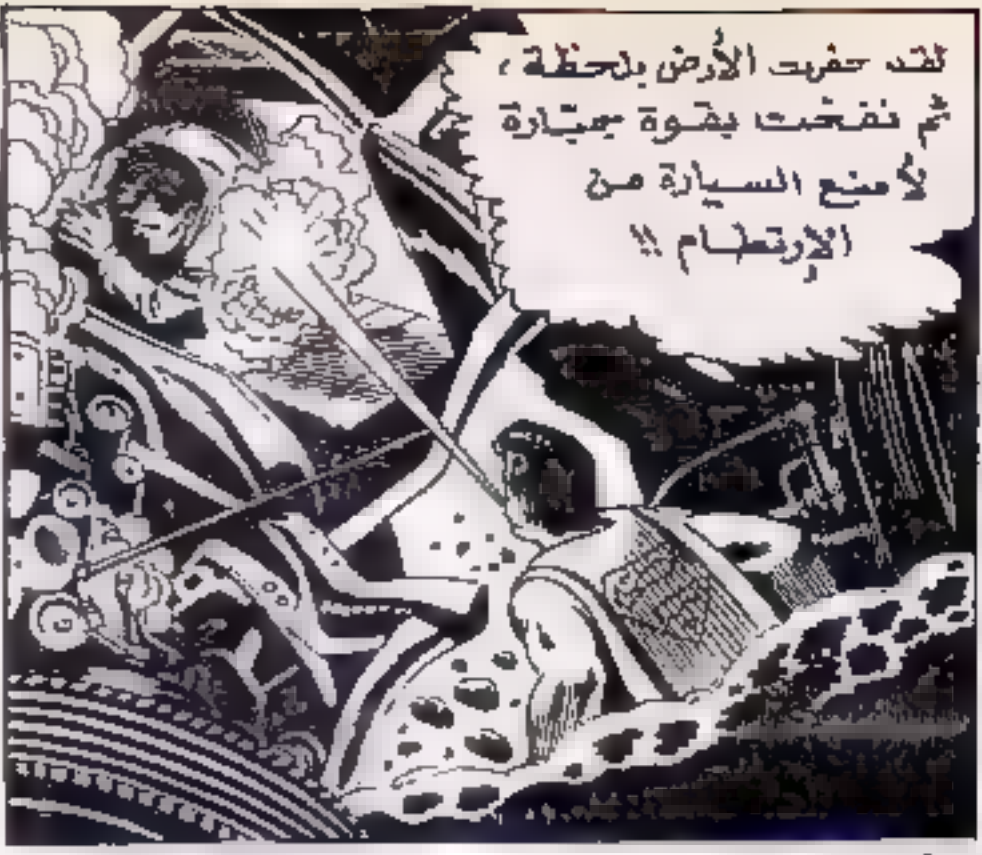 لقد حفرت الأرض بلحظة ،
ثم نفخت بقوة جبّارة
لأمنع السيارة من
الإرتطام !!